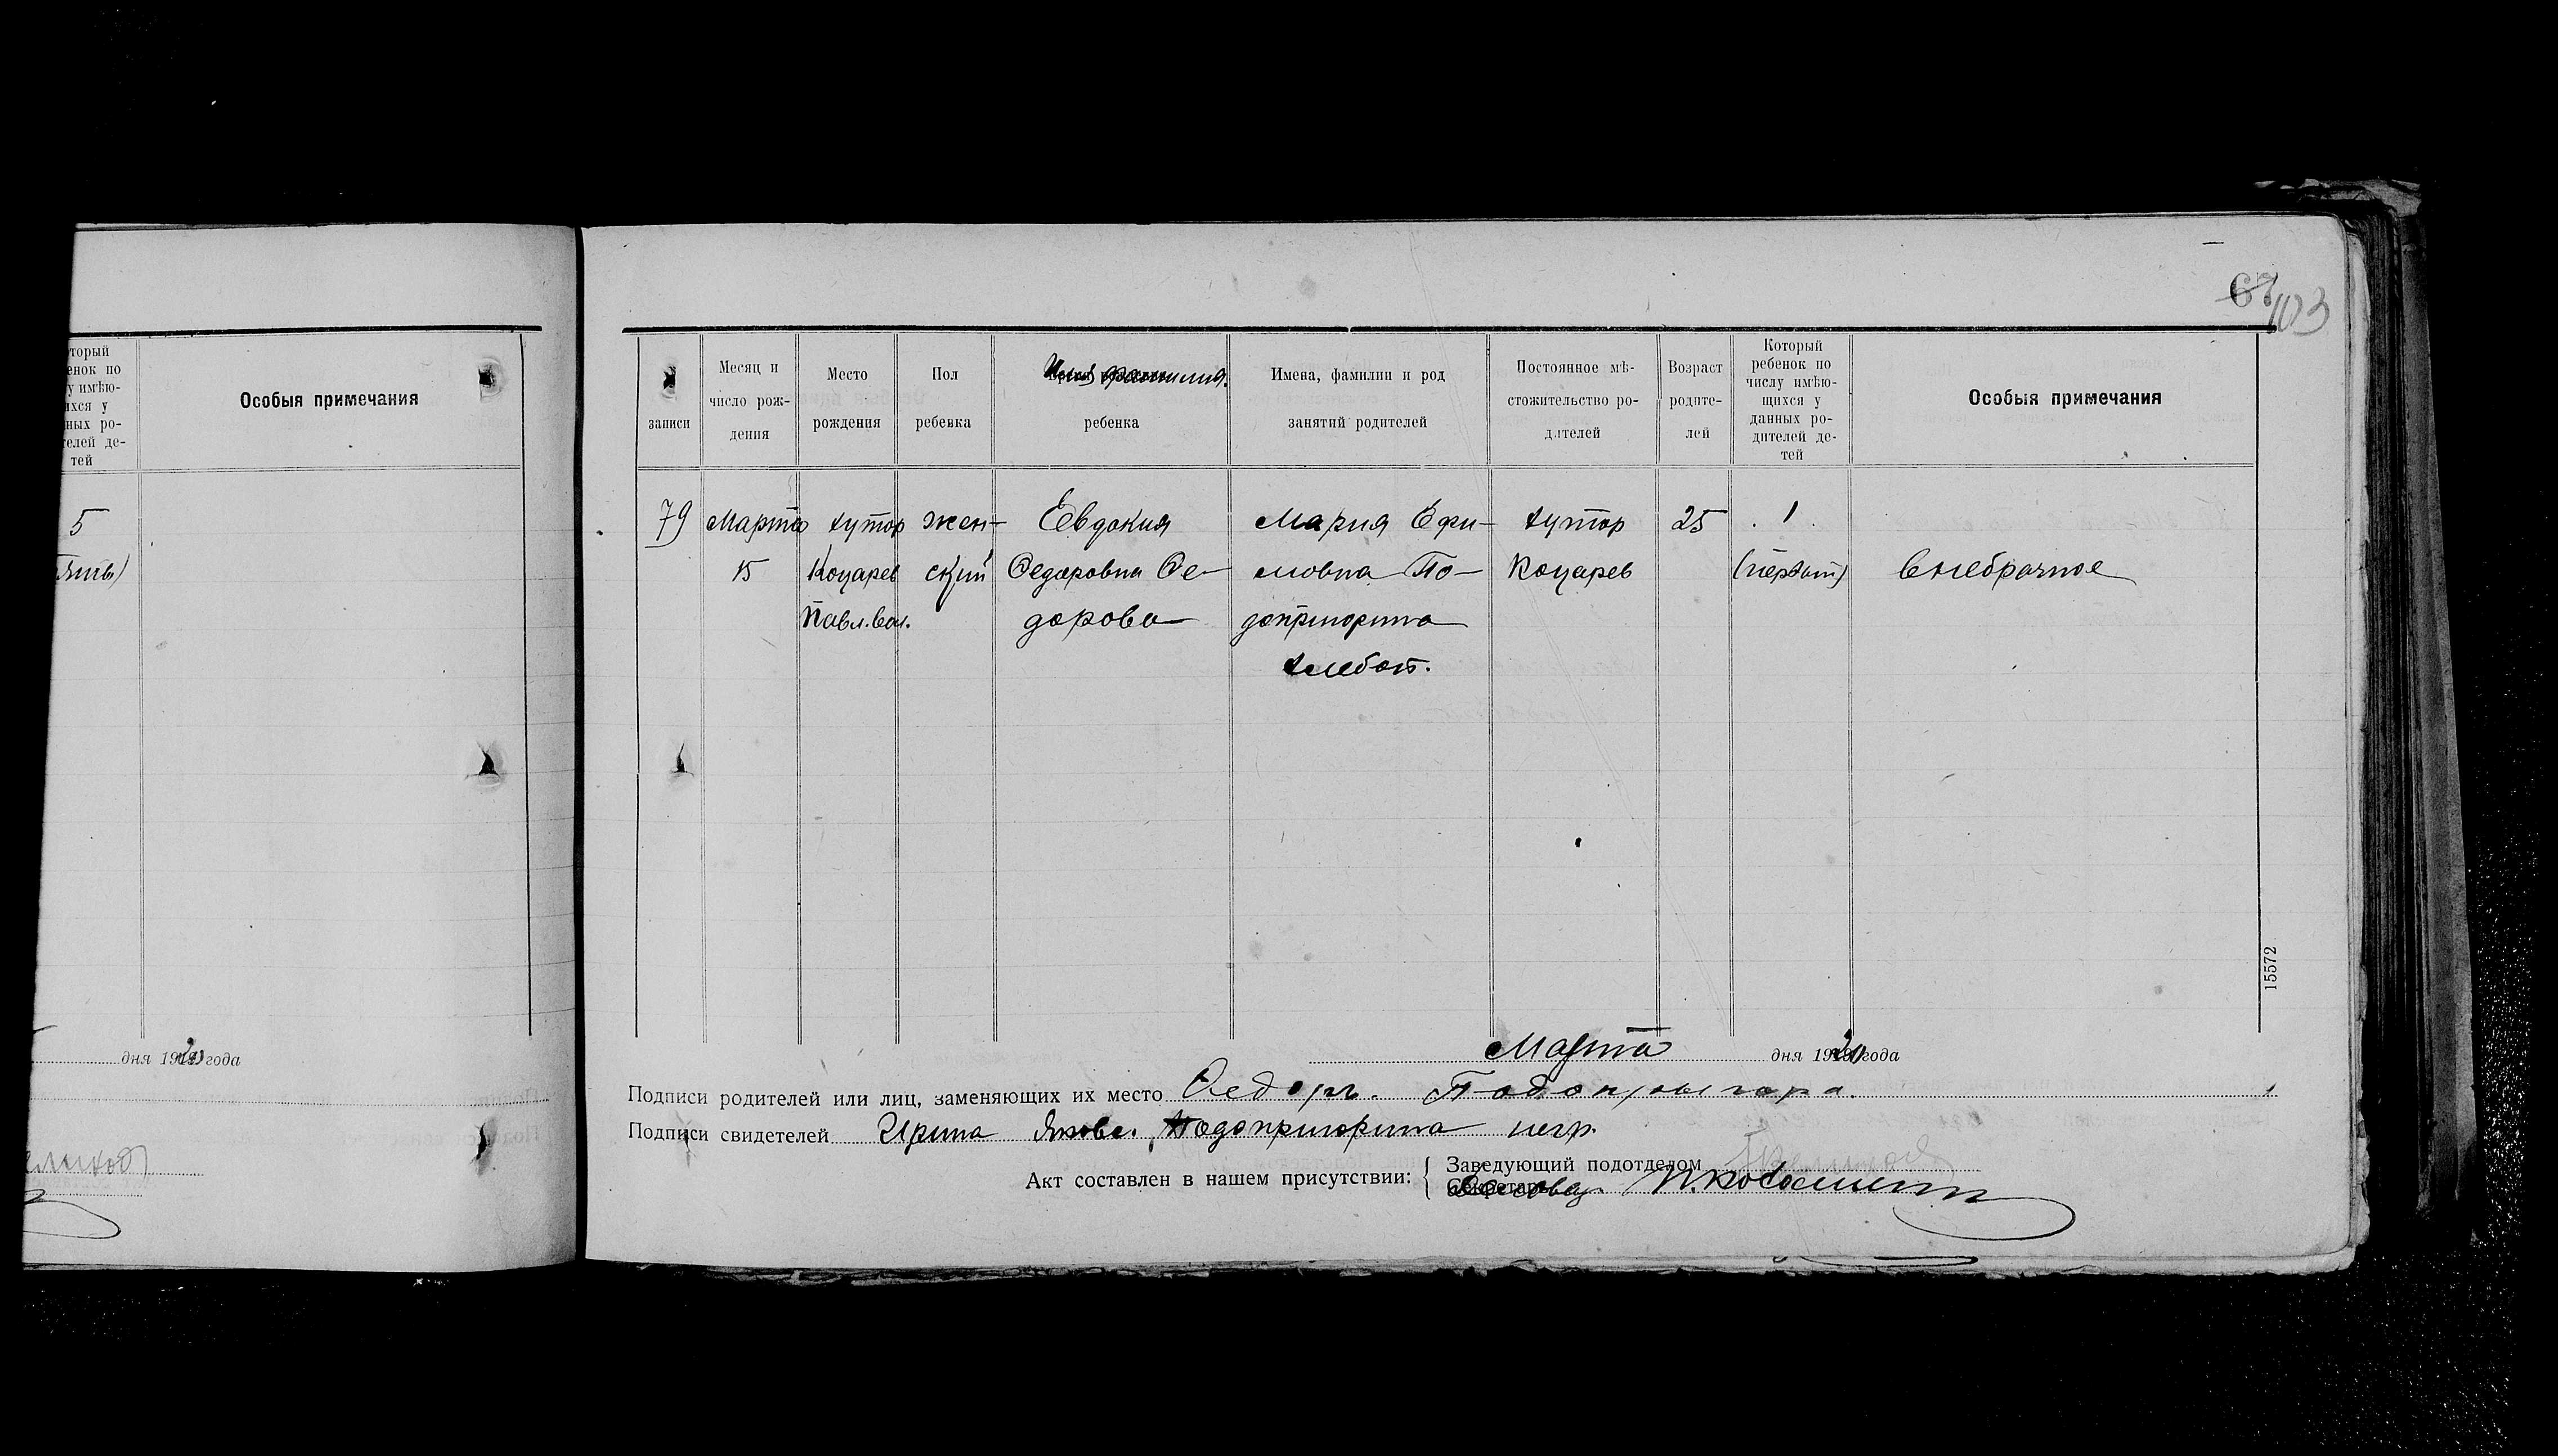 67 103
который
ребенок по
у имѣю-
ихся у
нных ро-
телей де-
тей
Особыя примечания
5
дня 1920 года
записи
Месяц и
число рож-
дения
Место
рождения
Пол
ребенка
Имя фамилия.
ребенка
Имена, фамилии и род
занятий родителей
Постоянное мѣ-
стожительство ро-
дителей
Возраст
родите-
лей
Который
ребенок по
числу имѣю-
щихся у
данных ро-
дителей де-
тей
Особыя примечания
79
Марта
15
хутор
Коцарев
Павл. вол.
жен-
ский
Евдокия
Федоровна Фе-
дорова
Мария Ефи-
мовна По-
допригорина
хлебоп.
хутор
Коцарев
25
1
(первый)
внебрачное
15572
Марта дня 1920 года
Подписи родителей или лиц, заменяющих их место Федоръ. Подопрыгора.
Подписи свидетелей Ирина Яковл. Подопригорина негр.
Акт составлен в нашем присутствии:
Заведующий подотделом
Секретарь